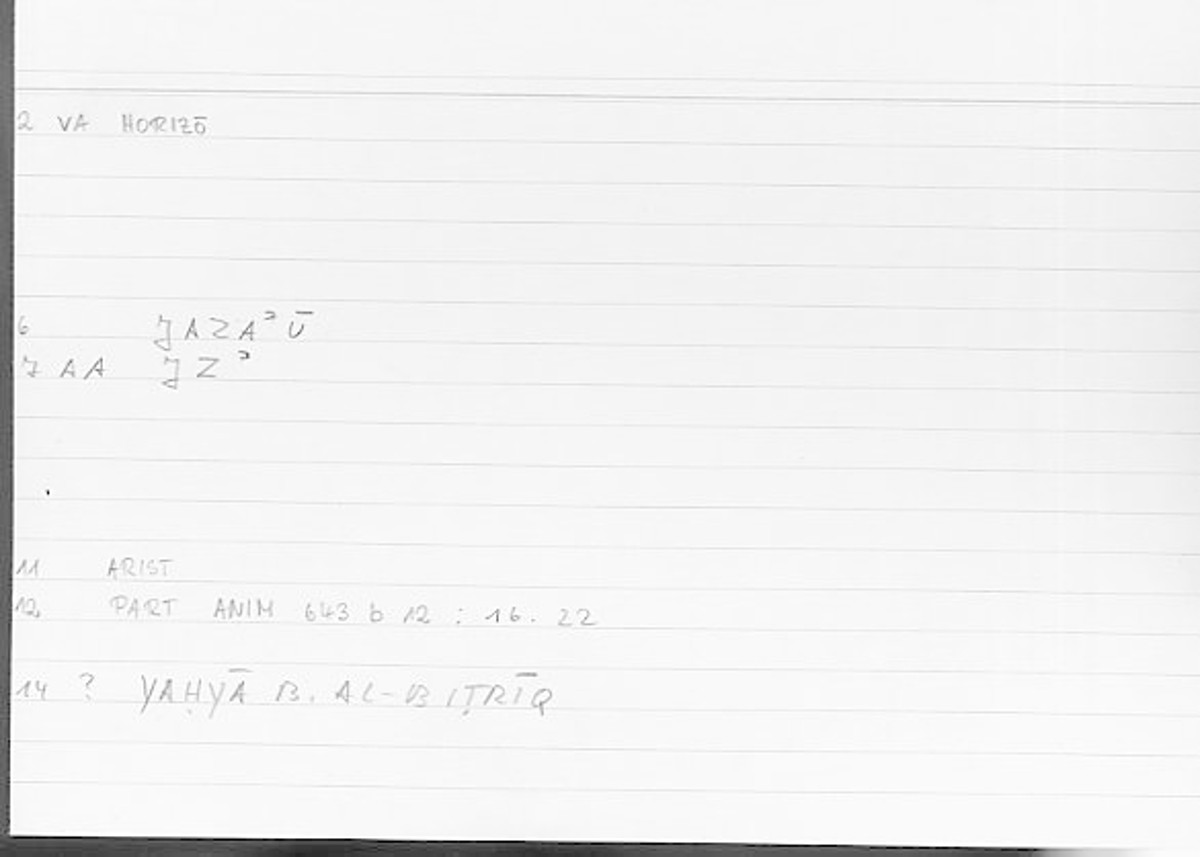 2 VA HORIZŌ
6 JAZAʾŪ
7 AA JZʾ
11 ARIST
12 PART ANIM 643 b 12 : 16. 22
14 ? YAḤYĀ B. AL-BIṬRĪQ